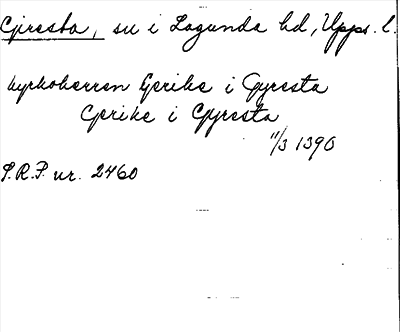 Giresta, sn i Lagunda hd, Upps. l.
kyrkoherren Gerike i Gyresta
Gerike i Gyresta
11/3 1390
S.R.P. nr. 2460